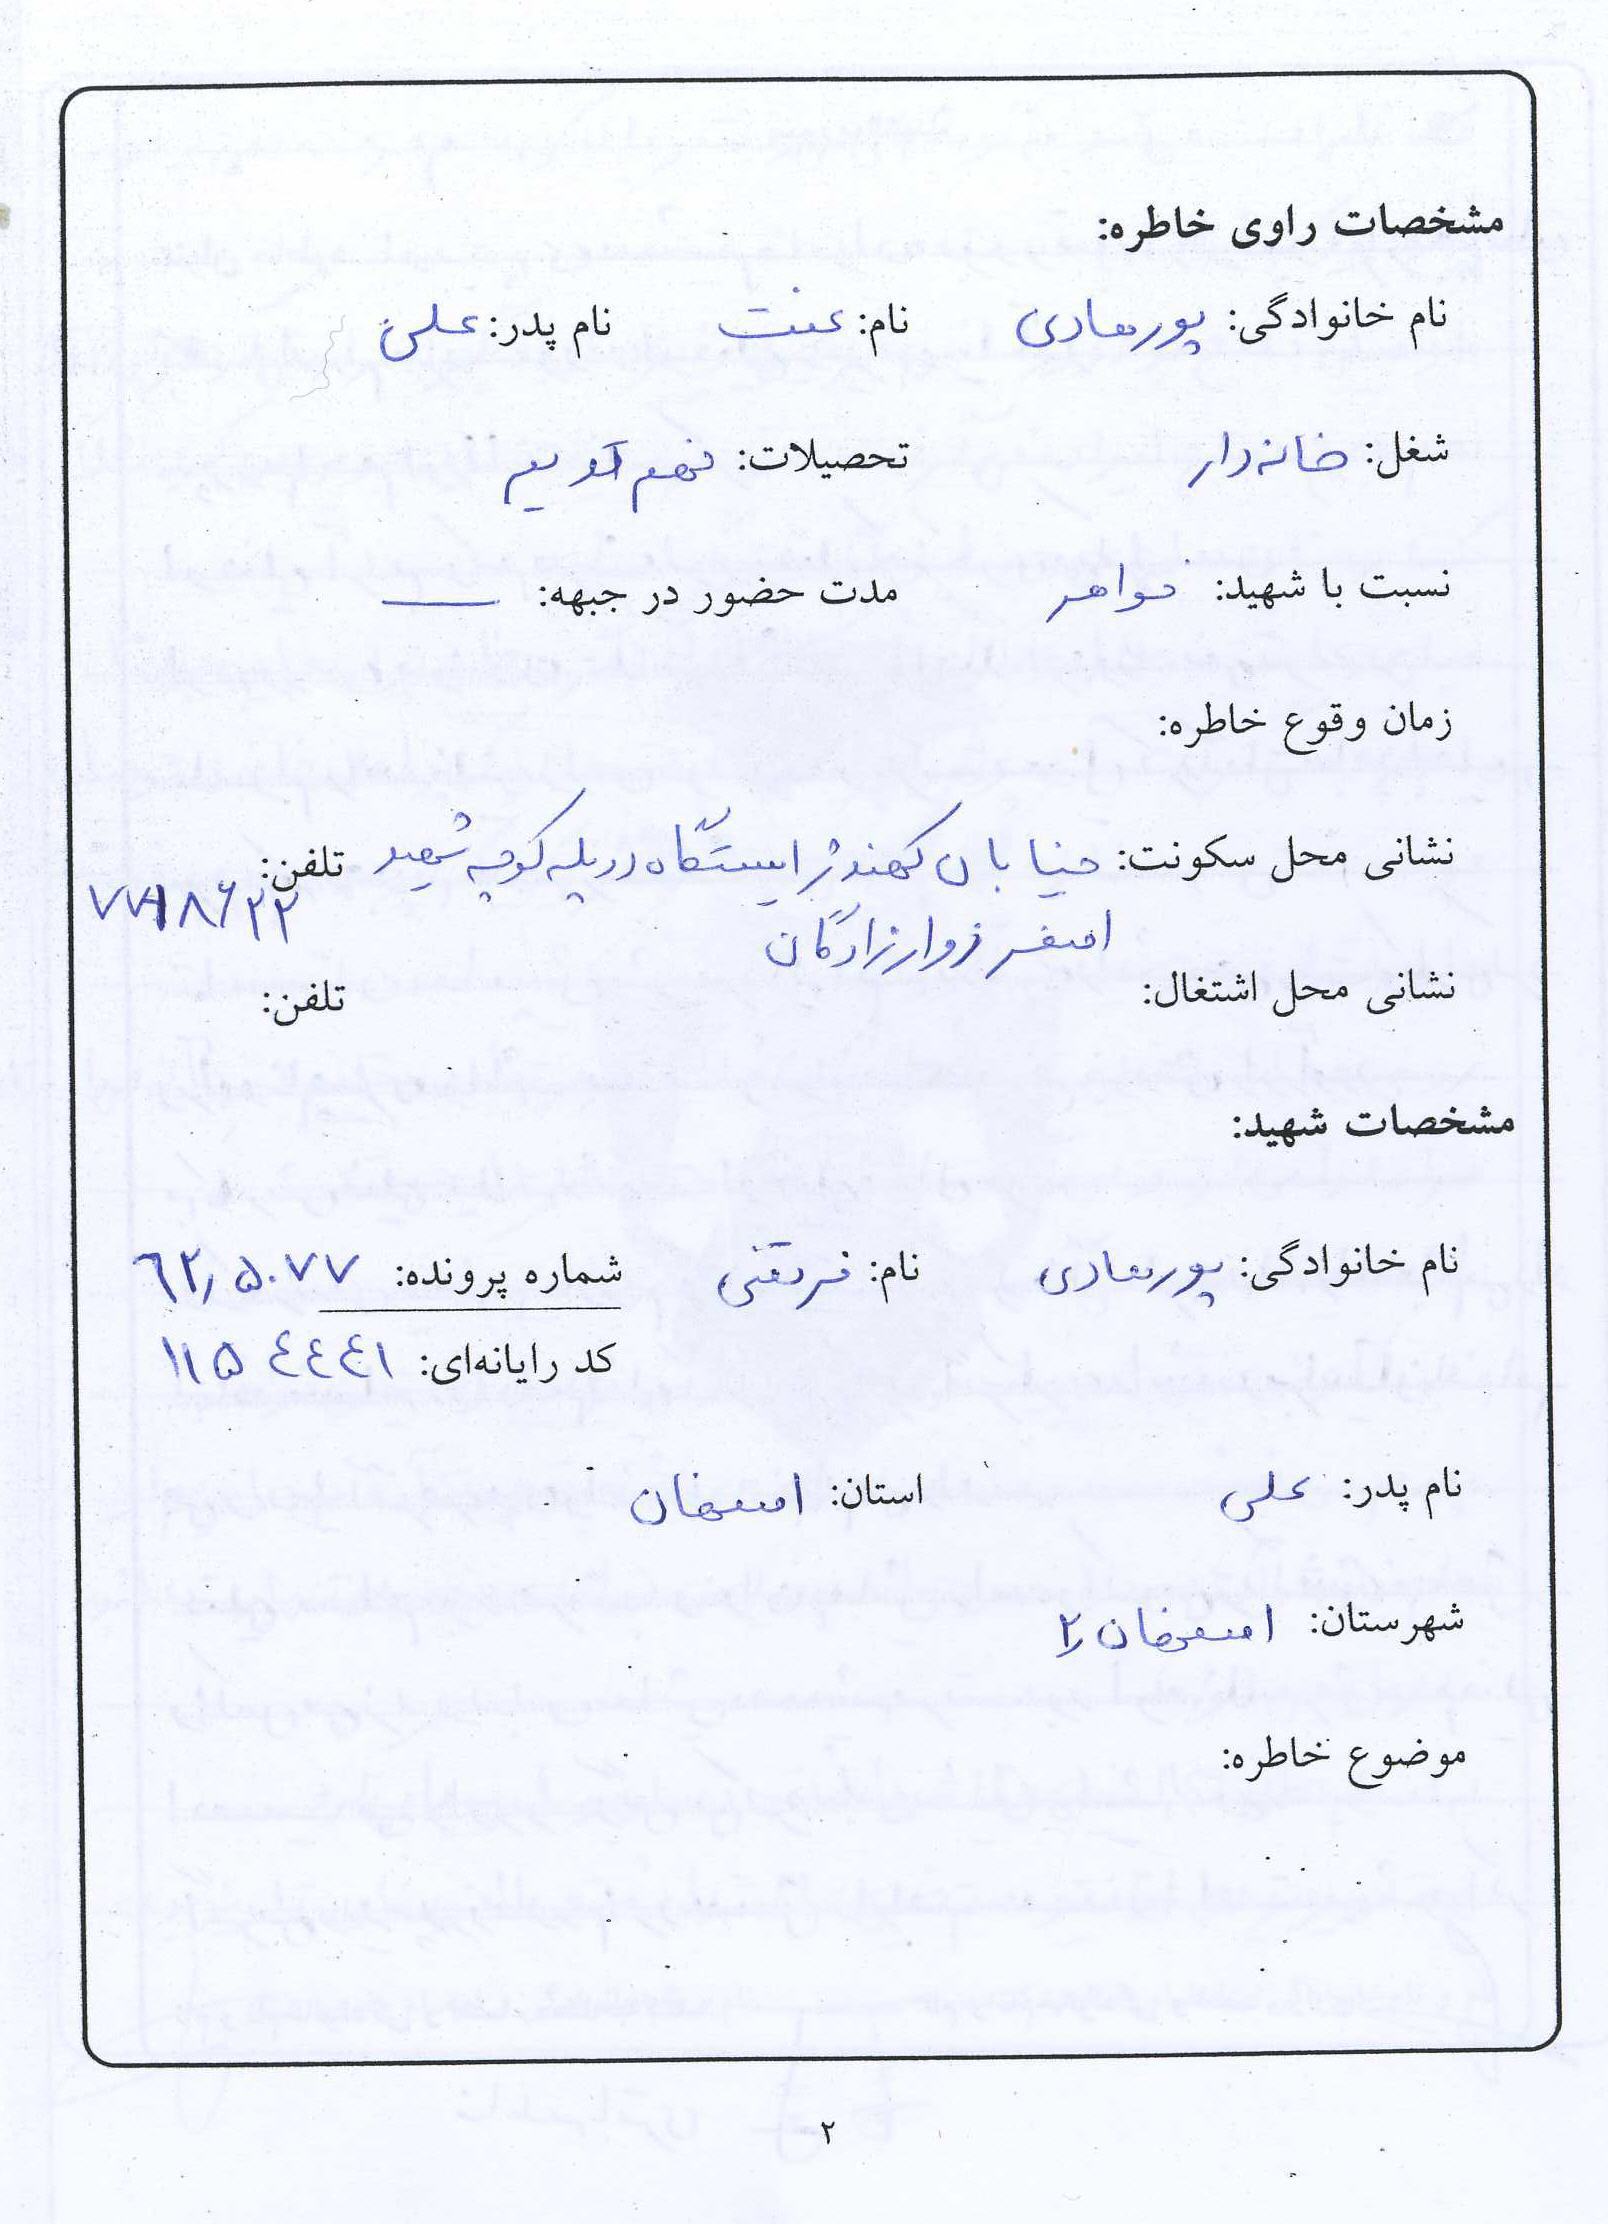 مشخصات راوی خاطره:
نام خانوادگی: پورهادی نام: عفت نام پدر: علی
شغل: خانه دار تحصیلات: نهم
نسبت با شهید: خواهر مدت حضور در جبهه: —
زمان وقوع خاطره:
نشانی محل سکونت: خیابان کهندژ ایستگاه دو پله کوچه شهید تلفن:
اصغر زوارزادگان
نشانی محل اشتغال: تلفن:
مشخصات شهید:
نام خانوادگی: پورهادی نام: شماره پرونده: ٦٢٫٥٠٧٧
کد رایانه‌ای: ١١٥٤٤٤١
نام پدر: علی استان: اصفهان
شهرستان: اصفهان ٢
موضوع خاطره:
٢